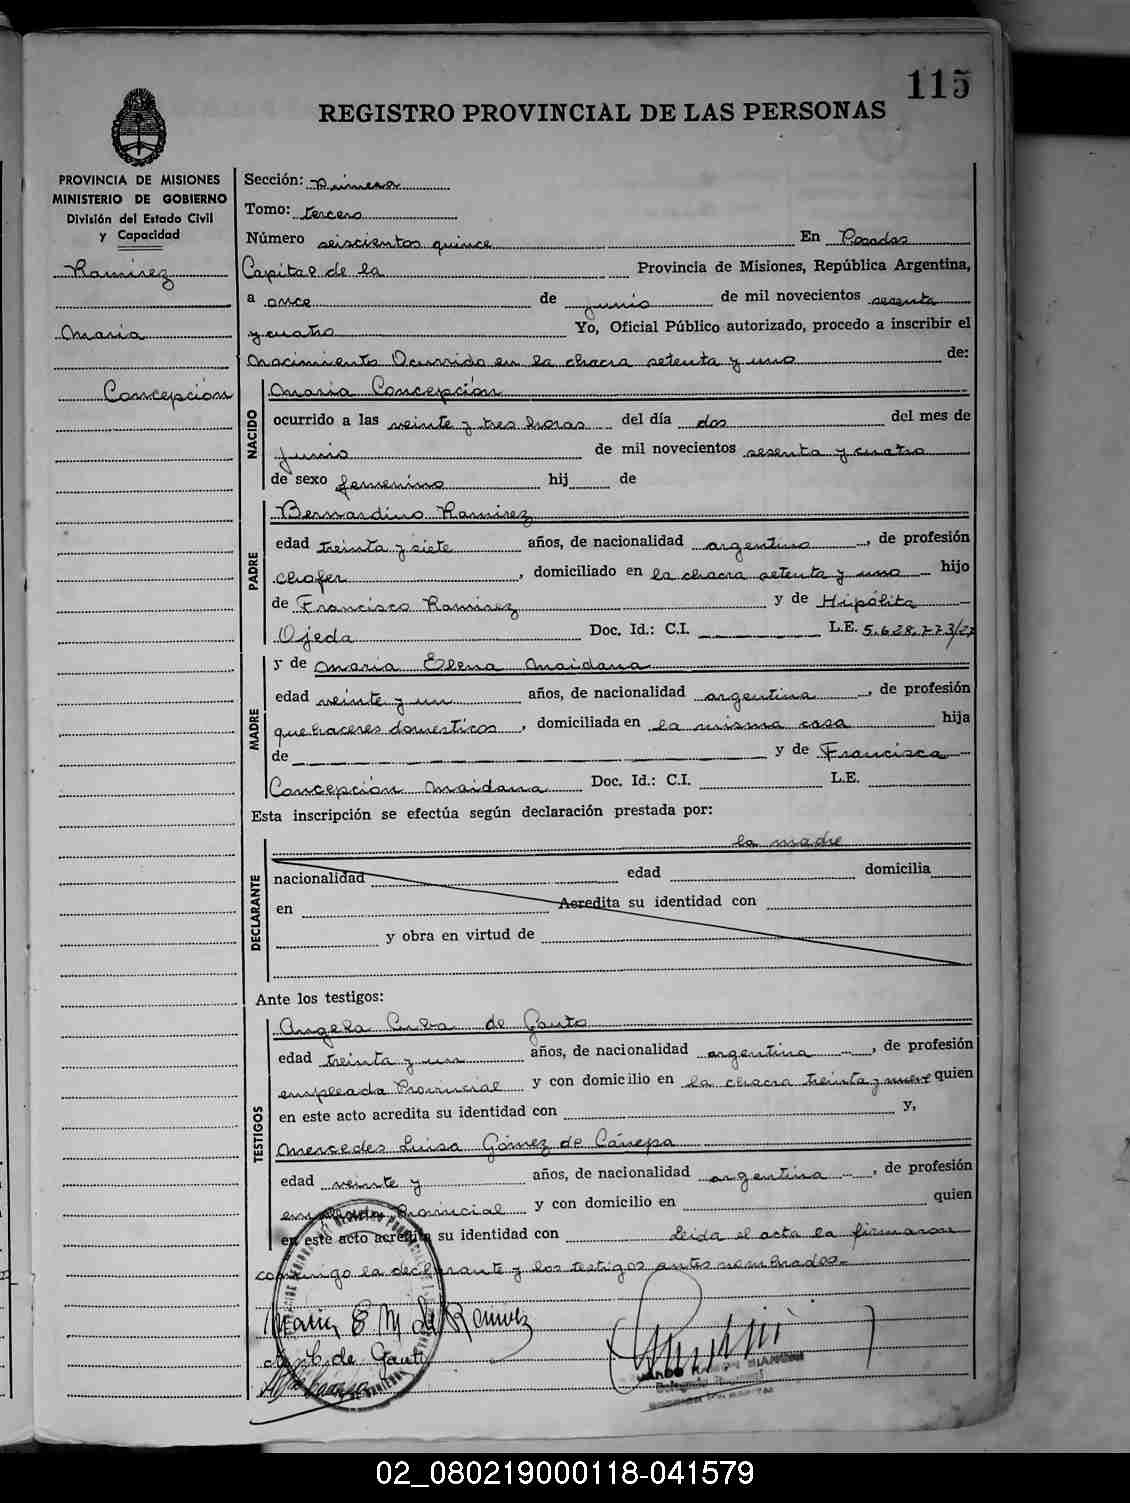 115
REGISTRO PROVINCIAL DE LAS PERSONAS
PROVINCIA DE MISIONES
MINISTERIO DE GOBIERNO
División del Estado Civil
y Capacidad
Ramirez
Maria
Concepción
Sección: Primera
Tomo: tercero
Número seiscientos quince En Posadas
Capital de la Provincia de Misiones, República Argentina,
a once de junio de mil novecientos sesenta
y cuatro Yo, Oficial Público autorizado, procedo a inscribir el
Nacimiento Ocurrido en la chacra setenta y uno de:
NACIDO
Maria Concepción
ocurrido a las veinte y tres horas del día dos del mes de
junio de mil novecientos sesenta y cuatro
de sexo femenino hij de
PADRE
Bernardino Ramirez
edad treinta y siete años, de nacionalidad argentino, de profesión
chofer, domiciliado en la chacra setenta y uno hijo
de Francisco Ramirez y de Hipólita
Ojeda Doc. Id.: C.I. L.E. 5.628.773/27
MADRE
y de Maria Elena Maidana
edad veinte y un años, de nacionalidad argentina, de profesión
quehaceres domesticos, domiciliada en la misma casa hija
de y de Francisca
Concepción Maidana Doc. Id.: C.I. L.E.
Esta inscripción se efectúa según declaración prestada por:
la madre
DECLARANTE
nacionalidad edad domicilia
en Acredita su identidad con
y obra en virtud de
Ante los testigos:
TESTIGOS
Angela de Gauto
edad treinta y un años, de nacionalidad argentina, de profesión
empleada Provincial y con domicilio en la chacra treinta y nueve quien
en este acto acredita su identidad con y,
Mercedes Luisa Gómez de Cánepa
edad veinte y años, de nacionalidad argentina, de profesión
empleada Provincial y con domicilio en quien
en este acto acredita su identidad con Leida el acta la firmaron
conmigo la declarante y los testigos antes nombrados.
Maria E M de Ramirez
de Gauto
02_080219000118-041579